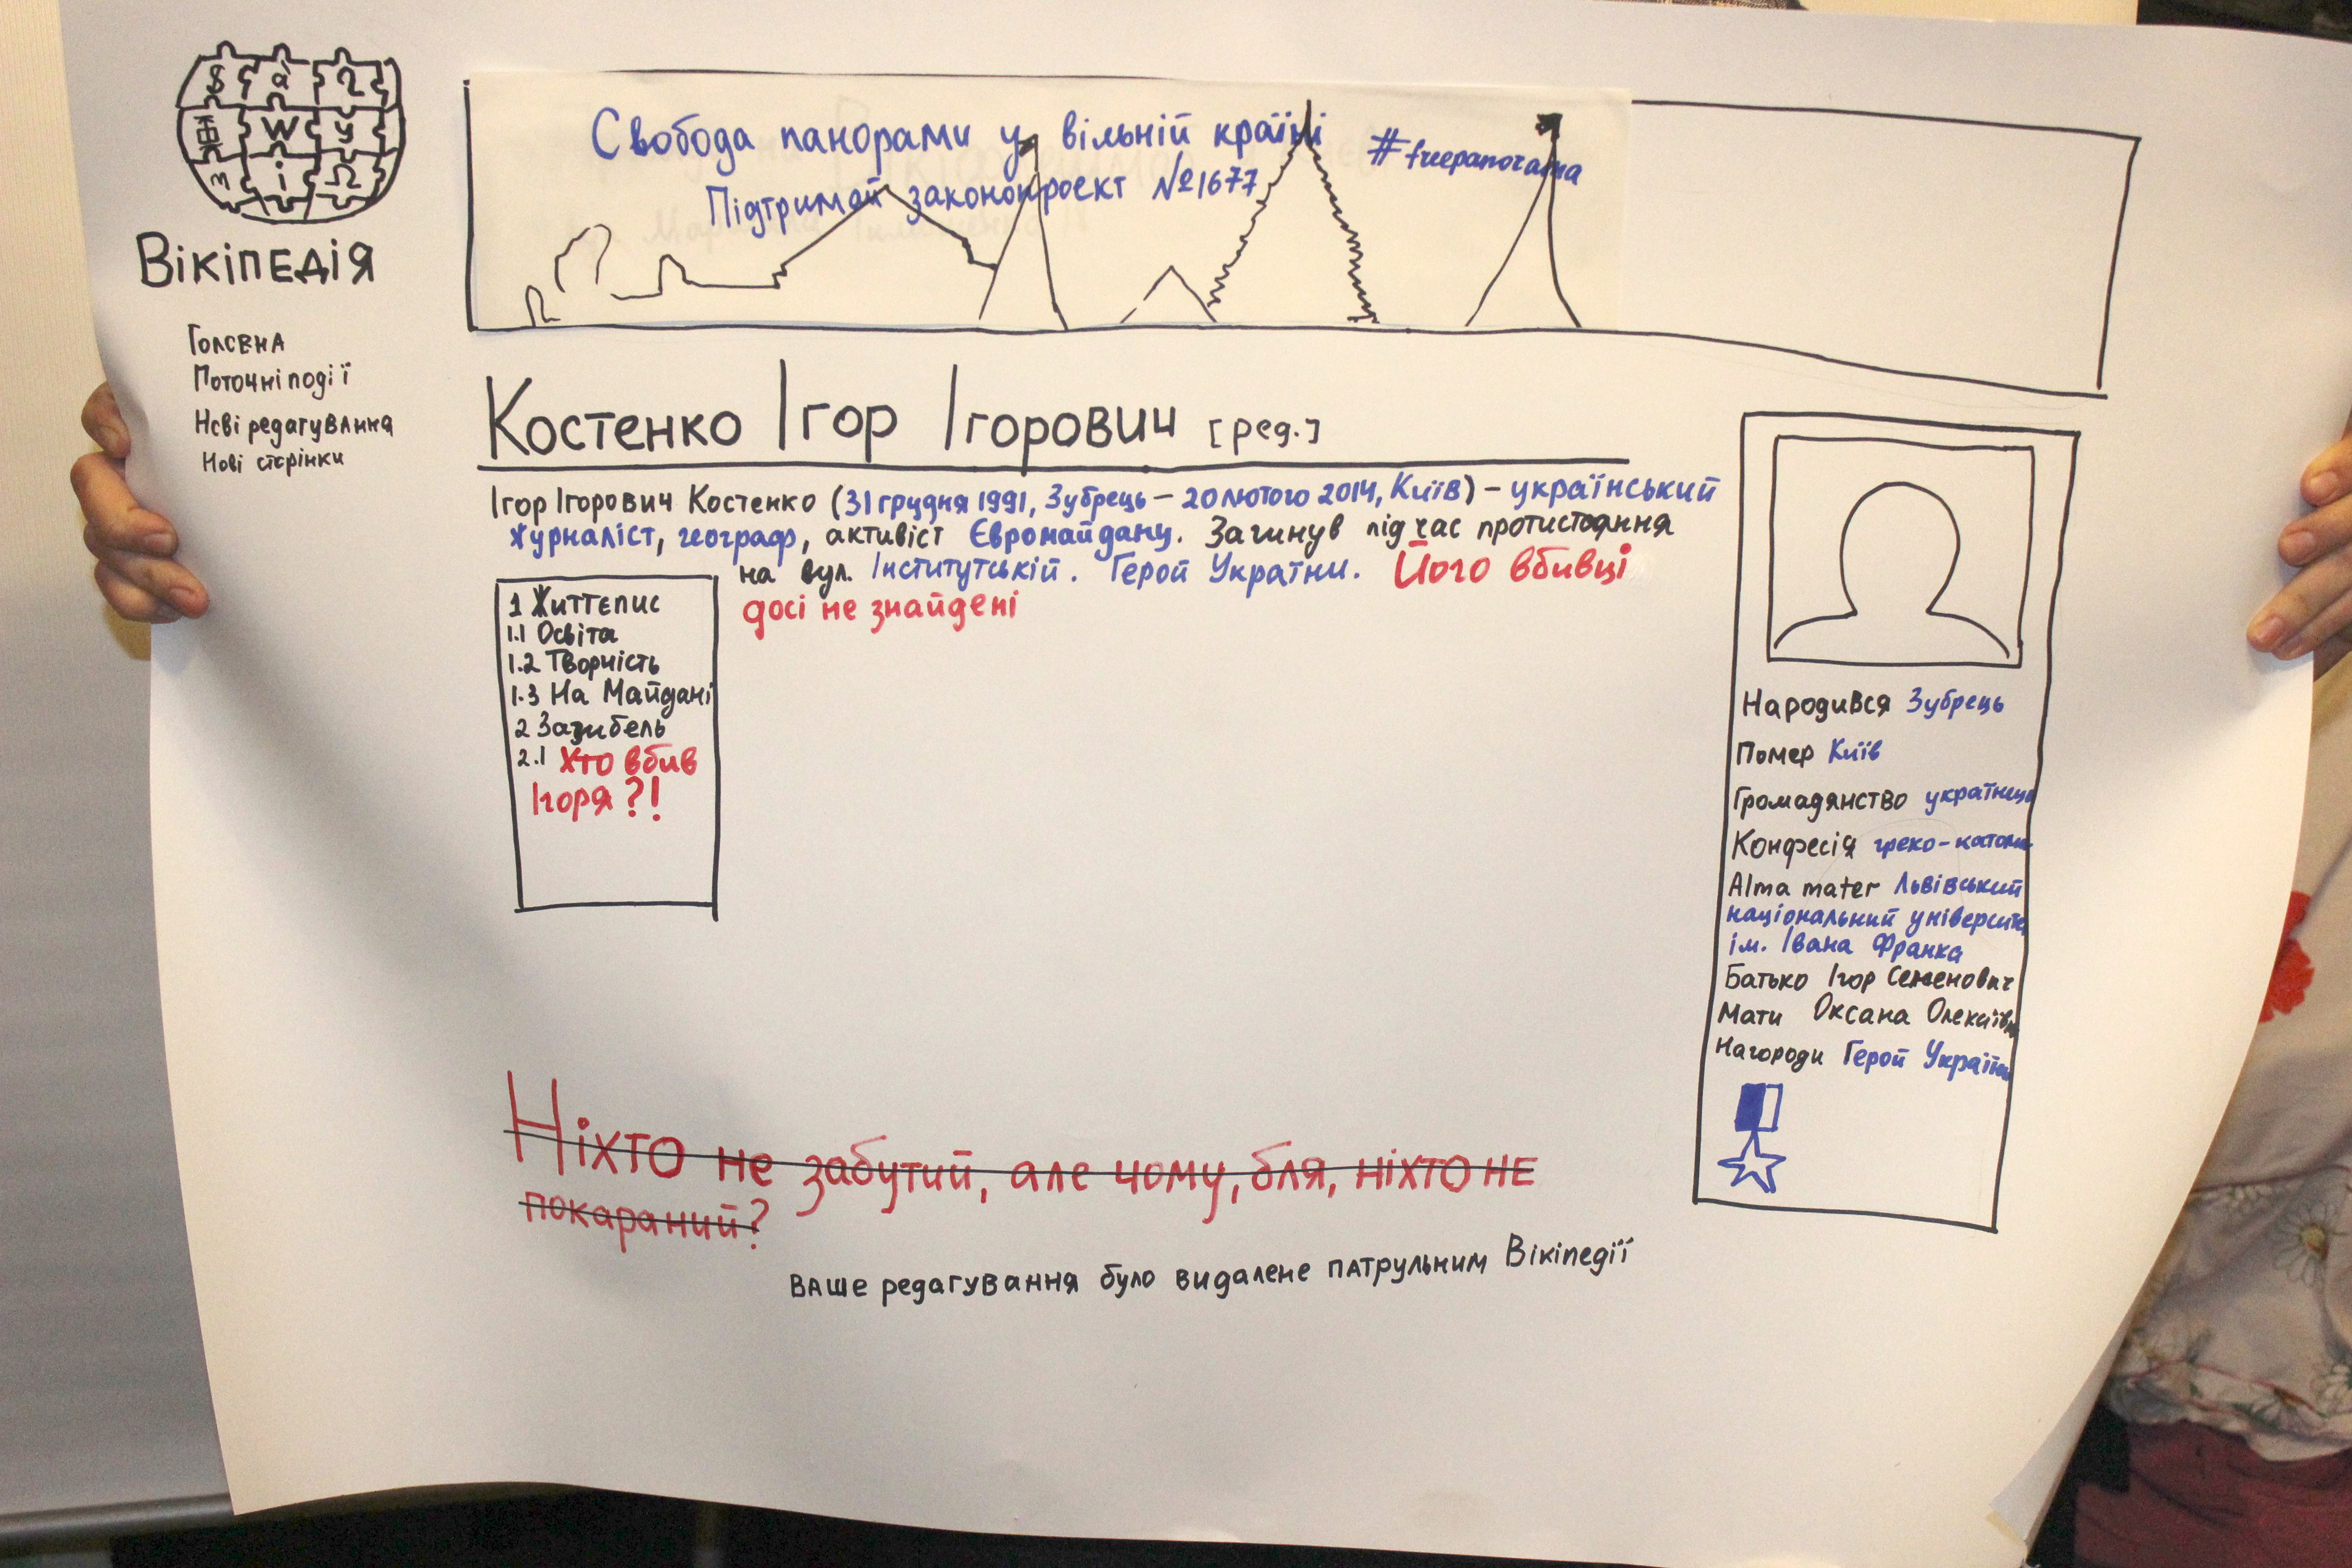 Вікіпедія
Головна
Поточні події
Нові редагування
Нові сторінки
Свобода панорами у вільній країні
#freepanorama
Підтримай законопроект №1677
Костенко Ігор Ігорович [ред.]
Ігор Ігорович Костенко (31 грудня 1991, Зубрець – 20 лютого 2014, Київ) – український
журналіст, географ, активіст Євромайдану. Загинув під час протистояння
на вул. Інститутській. Герой України. Його вбивці
досі не знайдені
1 Життєпис
1.1 Освіта
1.2 Творчість
1.3 На Майдані
2 Загибель
2.1 Хто вбив
Ігоря?!
Народився Зубрець
Помер Київ
Громадянство
Конфесія греко-катол
Alma mater Львівський
національний університ
ім. Івана Франка
Батько Ігор Семенович
Мати Оксана
Нагороди Герой
Ніхто не забутий, але чому, бля, ніхто не
покараний?
Ваше редагування було видалене патрульним Вікіпедії